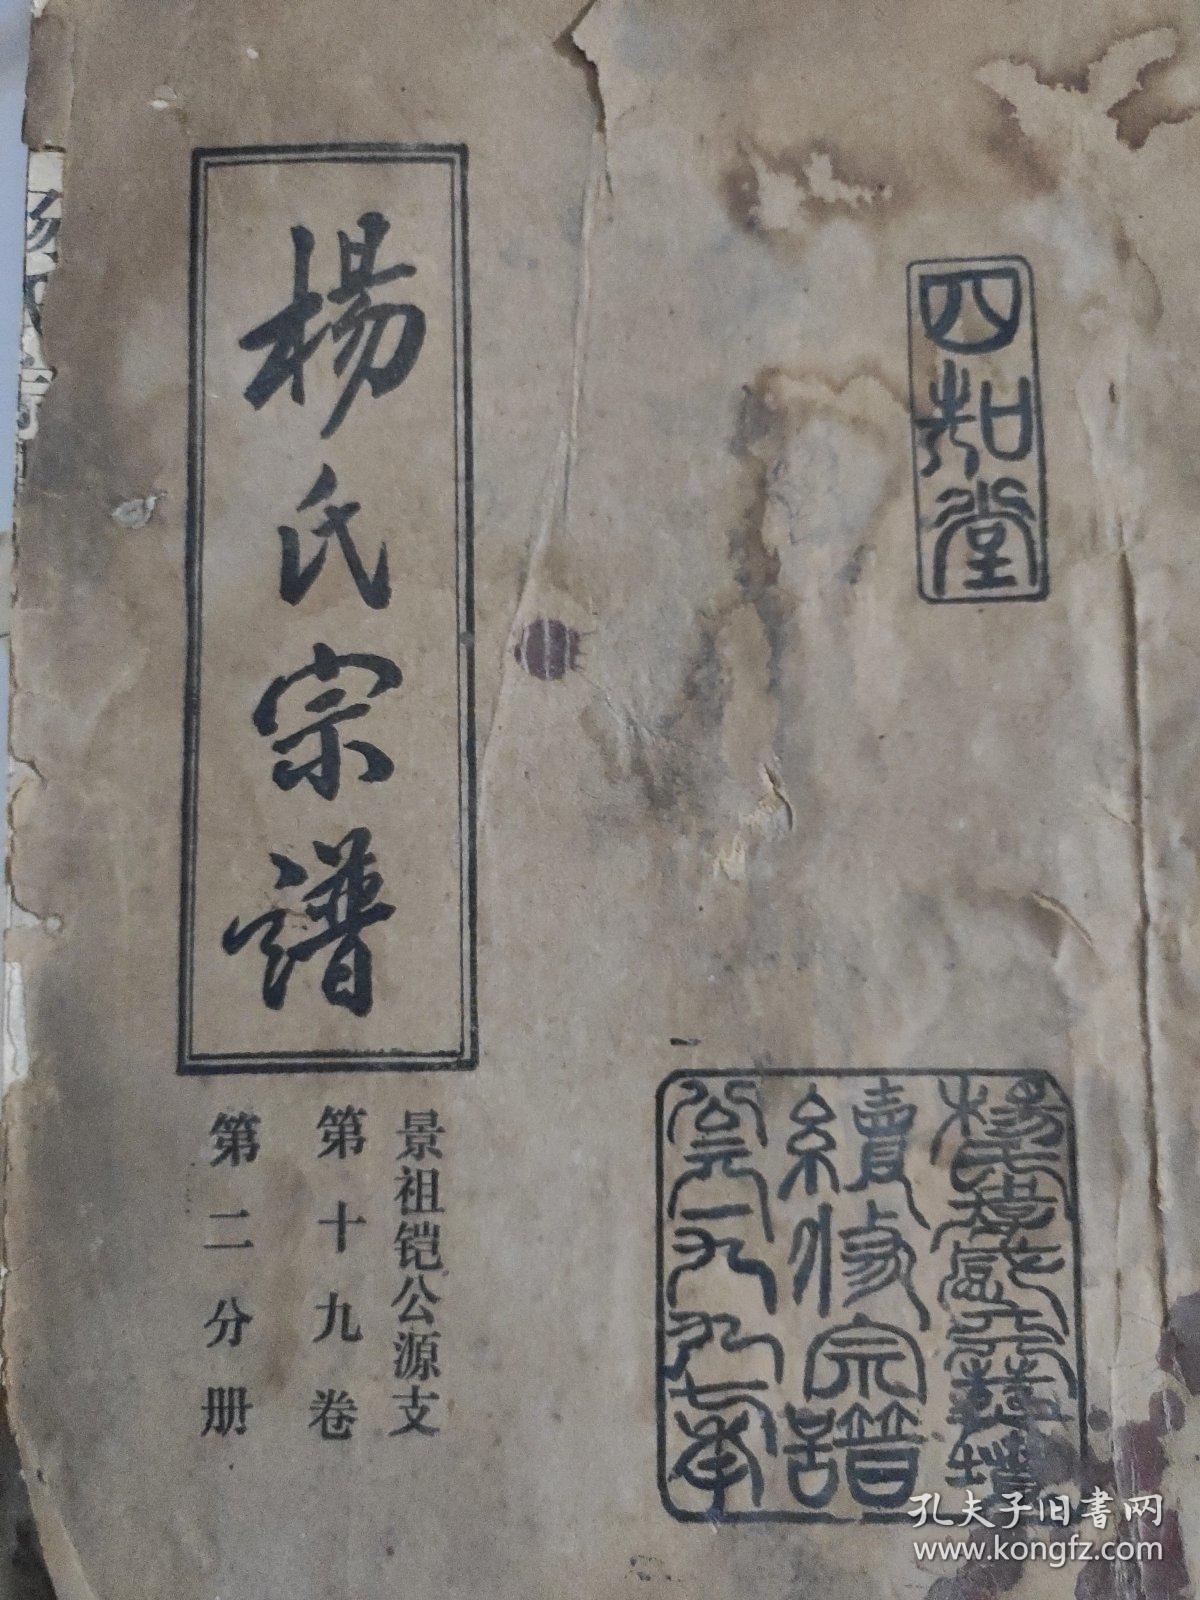 四知堂
續修宗譜
公元一九九七年
楊氏宗譜
景祖铠公源支
第十九卷
第二分册
孔夫子旧书网
www.kongfz.com